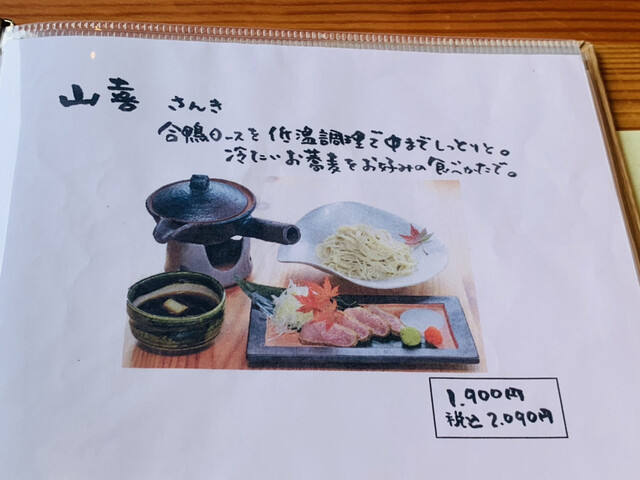 山喜 さんき
合鴨ロースを低温調理で中までしっとりと。
冷たいお蕎麦をお好みの食べかたで。
1.900円
税込2.090円